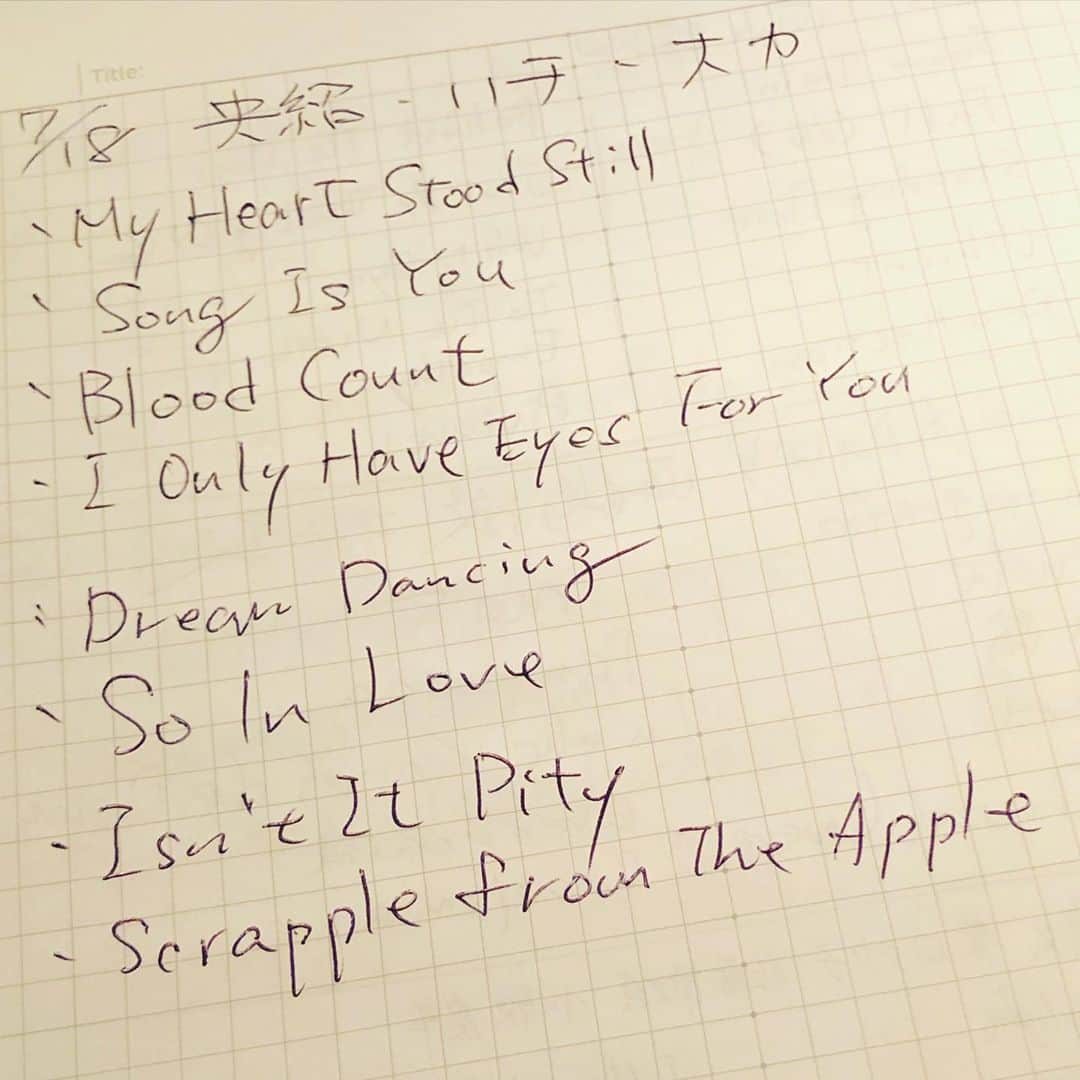 Title:
7/18 央紹・ハチ・大力
、My Heart Stood Still
、Song Is You
、Blood Count
・I Only Have Eyes For You
・Dream Dancing
、So In Love
・Isn't It Pity
、Scrapple from The Apple